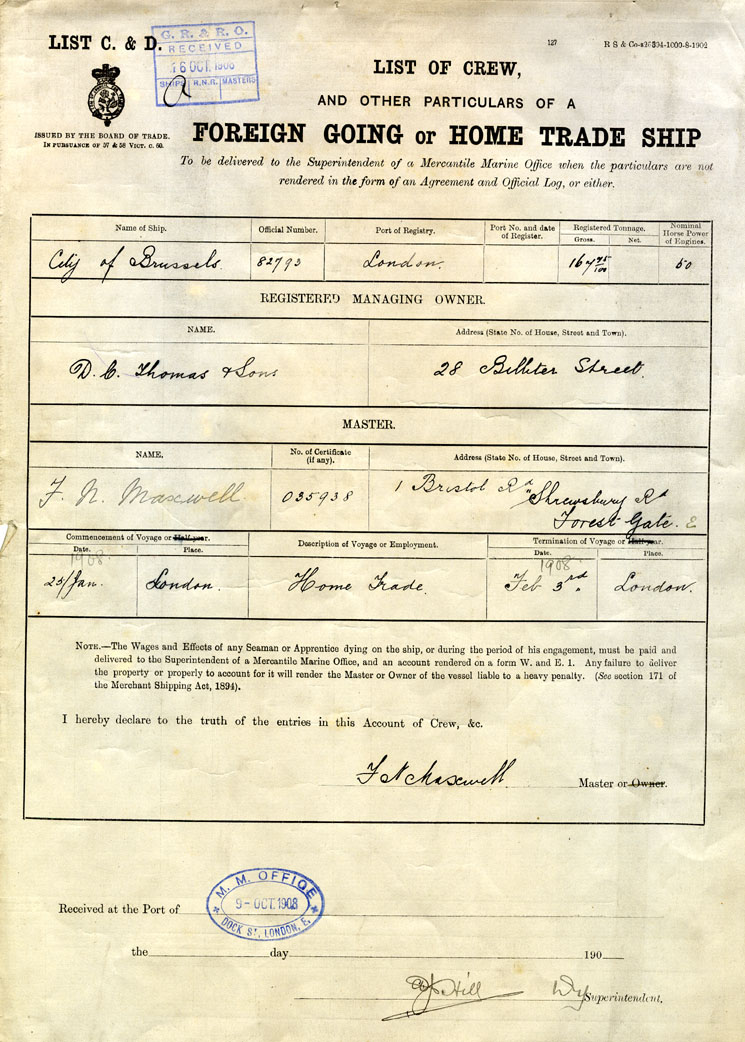 LIST C. & D.
G. R. & R. O.
RECEIVED
16 OCT. 1908
SHIPS R.N.R. MASTERS
127
R S & Co-s
-1000-8-1902
ISSUED BY THE BOARD OF TRADE.
IN PURSUANCE OF 57 & 58 VICT. C. 60.
LIST OF CREW,
AND OTHER PARTICULARS OF A
FOREIGN GOING or HOME TRADE SHIP
To be delivered to the Superintendent of a Mercantile Marine Office when the particulars are not
rendered in the form of an Agreement and Official Log, or either.
Name of Ship. Official Number. Port of Registry. Port No. and date of Register. Registered Tonnage. Gross. Net. Nominal Horse Power of Engines.
City of Brussels 82793 London. 50
REGISTERED MANAGING OWNER.
NAME. Address (State No. of House, Street and Town).
D. C. Thomas & Sons 28 Billiter Street.
MASTER.
NAME. No. of Certificate (if any). Address (State No. of House, Street and Town).
F. N. Maxwell 035938 1 Bristol Rd Shrewsbury Rd
Forest Gate. E
Commencement of Voyage or Half-year. Description of Voyage or Employment. Termination of Voyage or Half-year.
Date. Place. Date. Place.
1908 1908
25/Jan. London. Home Trade. Feb 3rd. London.
NOTE.—The Wages and Effects of any Seaman or Apprentice dying on the ship, or during the period of his engagement, must be paid and
delivered to the Superintendent of a Mercantile Marine Office, and an account rendered on a form W. and E. 1. Any failure to deliver
the property or properly to account for it will render the Master or Owner of the vessel liable to a heavy penalty. (See section 171 of
the Merchant Shipping Act, 1894).
I hereby declare to the truth of the entries in this Account of Crew, &c.
F N Maxwell Master or Owner.
M. M. OFFICE
9- OCT. 1908
DOCK ST, LONDON, E.
Received at the Port of
the day 190
Hill Dy Superintendent.